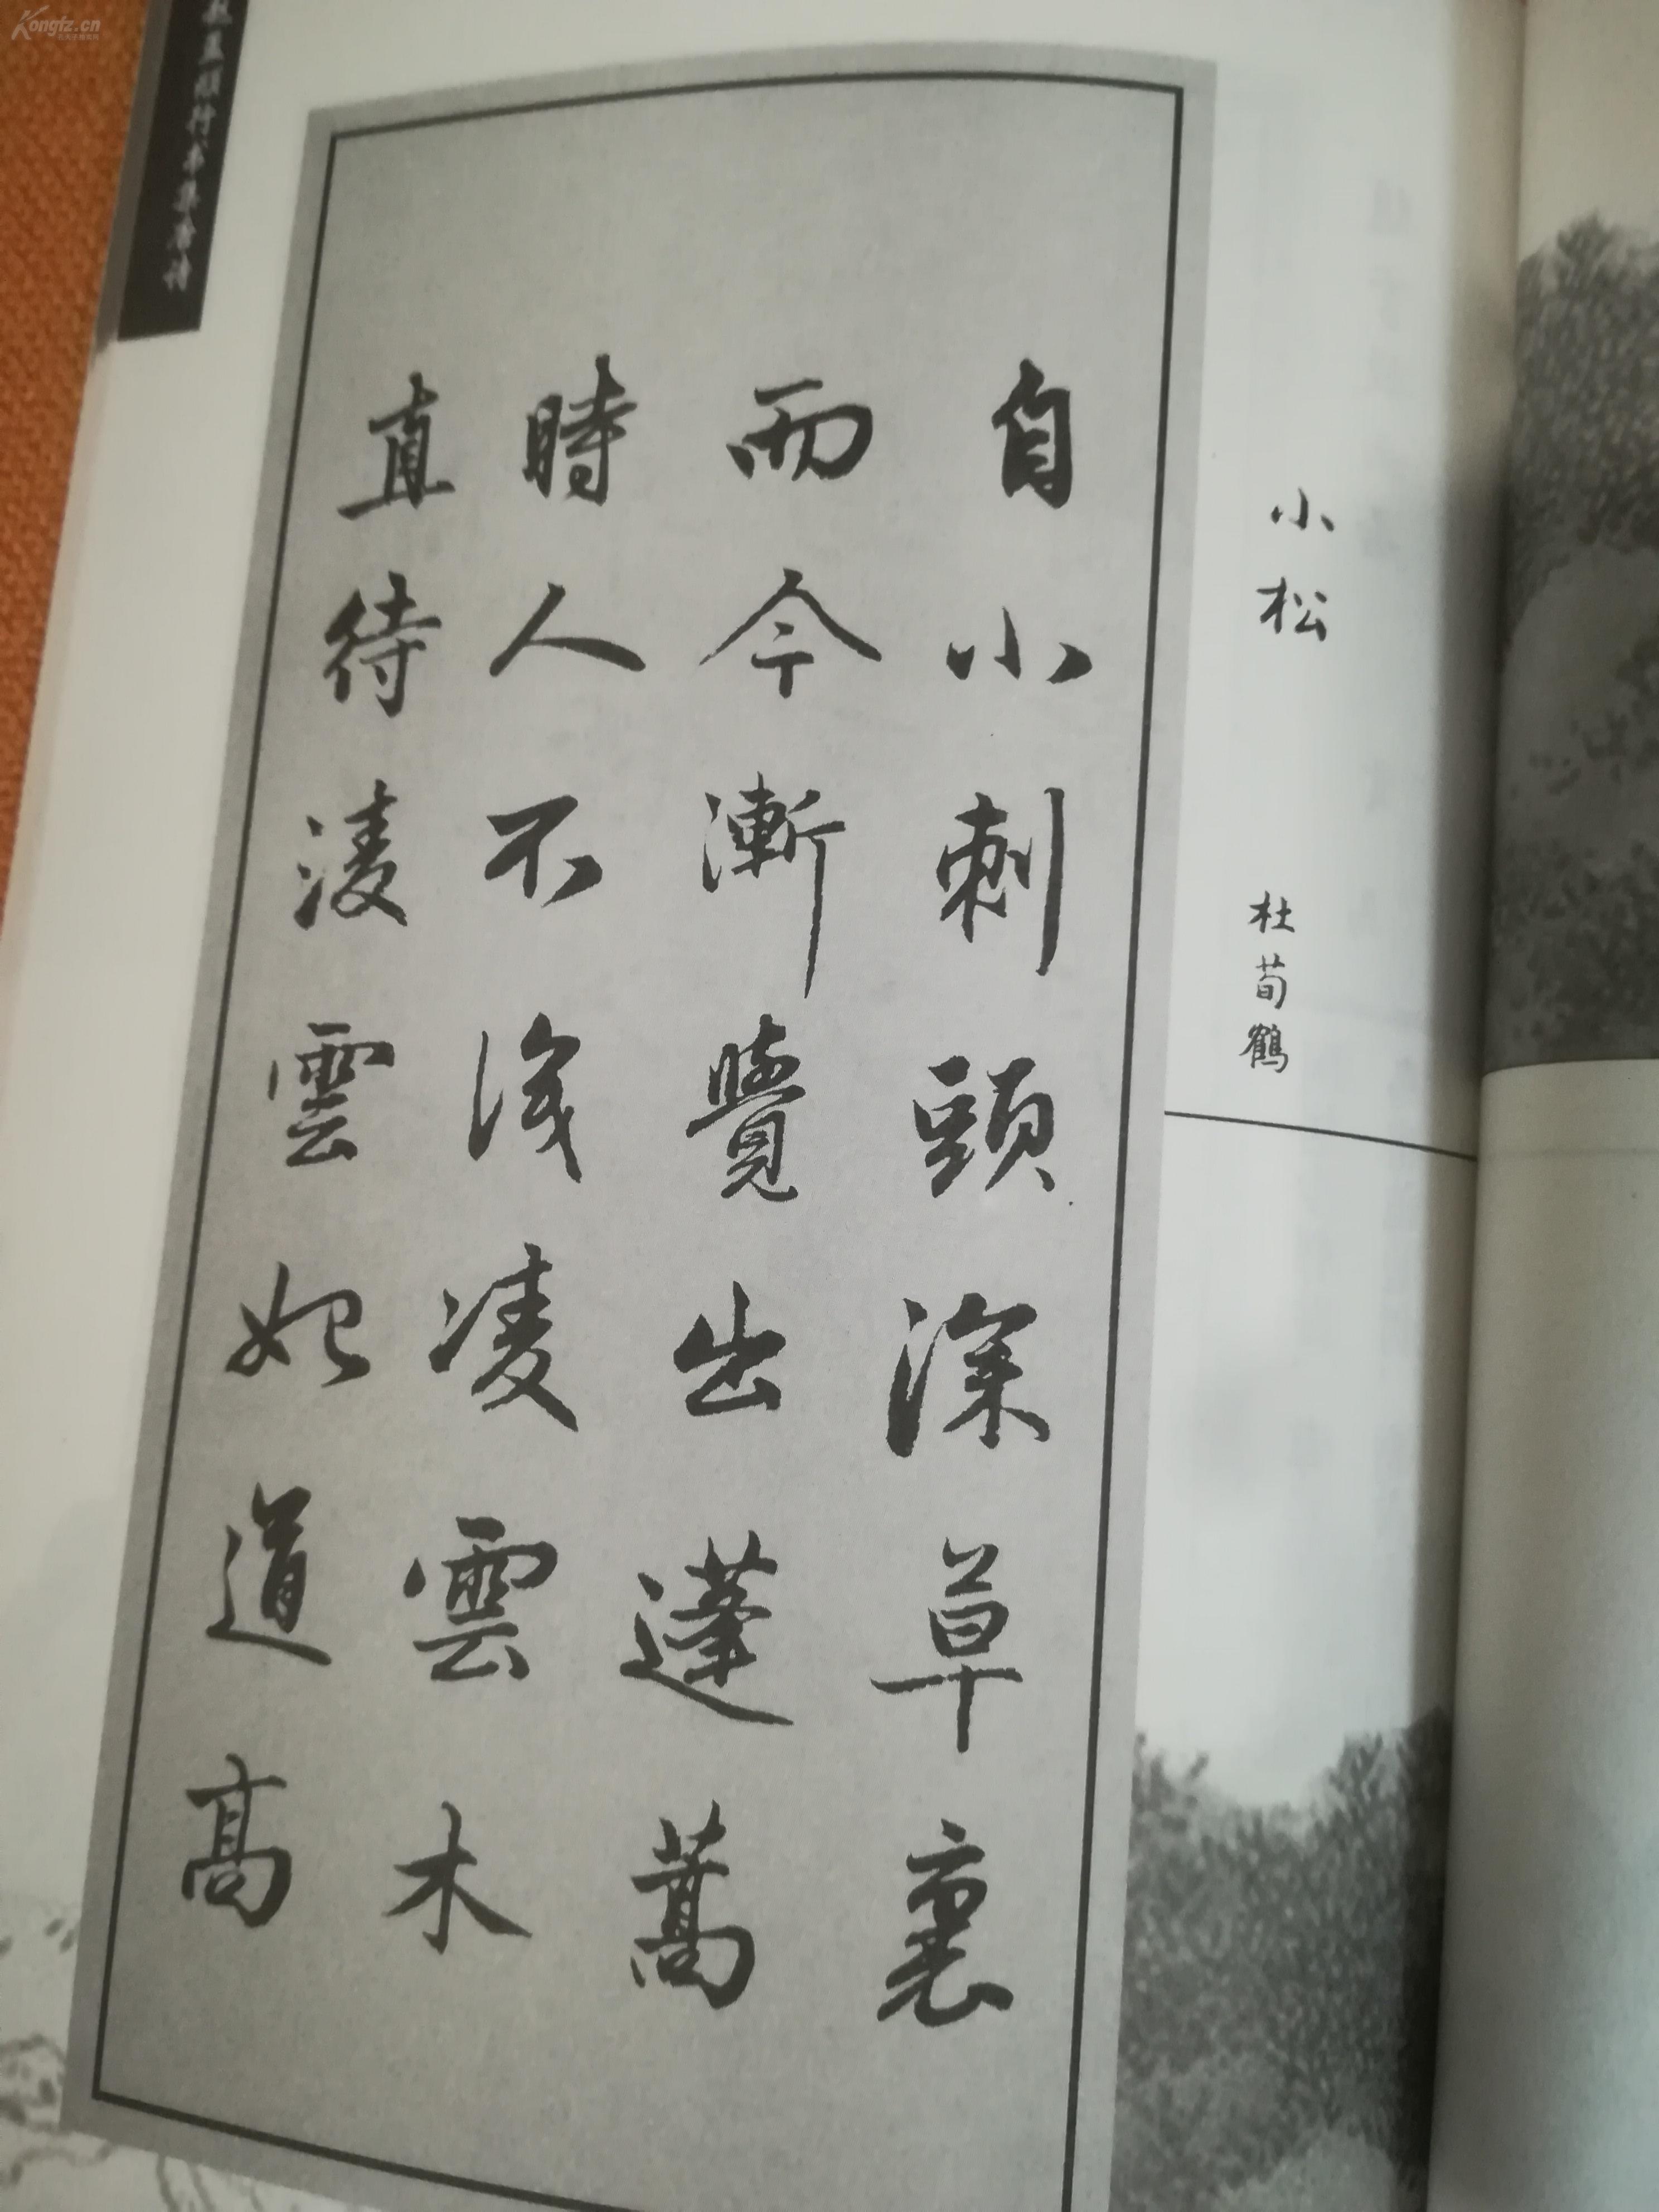 小松
杜荀鶴
自小刺頭深草裏
而今漸覺出蓬蒿
時人不識凌雲木
直待淩雲始道高
孟頫行书集唐诗
Kongfz.cn